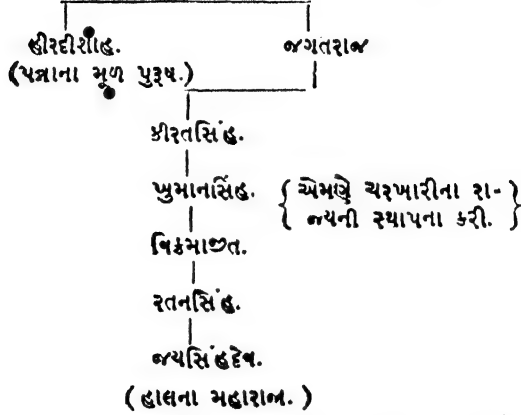 હીરદીશાહ. જગતરાજ
(પન્નાના મૂળ પુરૂષ.)
કીરતસિંહ.
ખુમાનસિંહ. { એમણે ચરખારીના રા- }
{ જ્યની સ્થાપના કરી. }
વિક્રમાજીત.
રતનસિંહ.
જયસિંહદેવ.
(હાલના મહારાજા.)